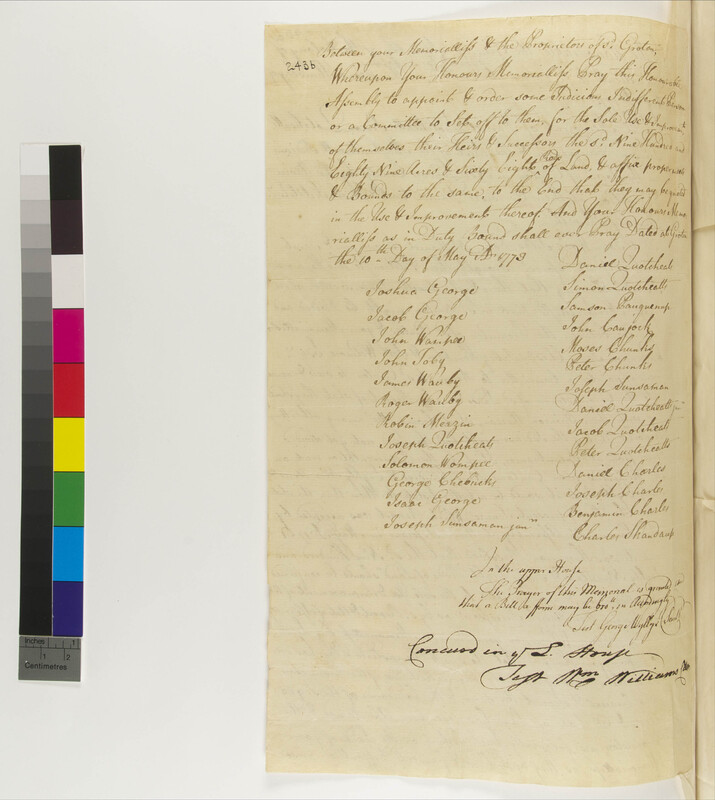 243b
Between your Memoriallists & the Proprietors of sd. Groton,
Whereupon Your Honours Memoriallists Pray this Honourable
Assembly to appoint & order some Judicious Indifferent Person
or a Committee to Sett off to them, for the Sole Use & Improvmt.
of themselves their Heirs & Successors the sd. Nine Hundred and
Eighty Nine Acres & Sixty Eight rods of Land, & affix proper
& Bounds to the same, to the End that they may be quieted
in the Use & Improvement thereof. And Your Honours Memo
riallists as in Duty Bound shall ever Pray Dated at Groton
the 10th. Day of May AD 1773
Daniel Quotcheats
Joshua George
Simon Quotcheatts
Jacob George
Samson
John Waupee
John Caujock
John Toby
Moses Chunks
James Wauby
Peter Chunks
Roger Wauby
Joseph Sunsaman
Robin Merzin
Daniel Quotcheatt junr
Joseph Quotcheats
Jacob Quotcheats
Solomon Wompee
Peter Quotcheatts
George Chebucks
Daniel Charles
Isaac George
Joseph Charles
Joseph Sunsaman junr.
Benjamin Charles
Charles Skandaup
In the upper House
The Prayer of this Memorial is granted &
that a Bill in form may be bro't. in Accordingly
Test George Wyllys Secrety
Concurd in ye L. House
Test Wm Williams Clk
Inches 1
1 2
Centimetres